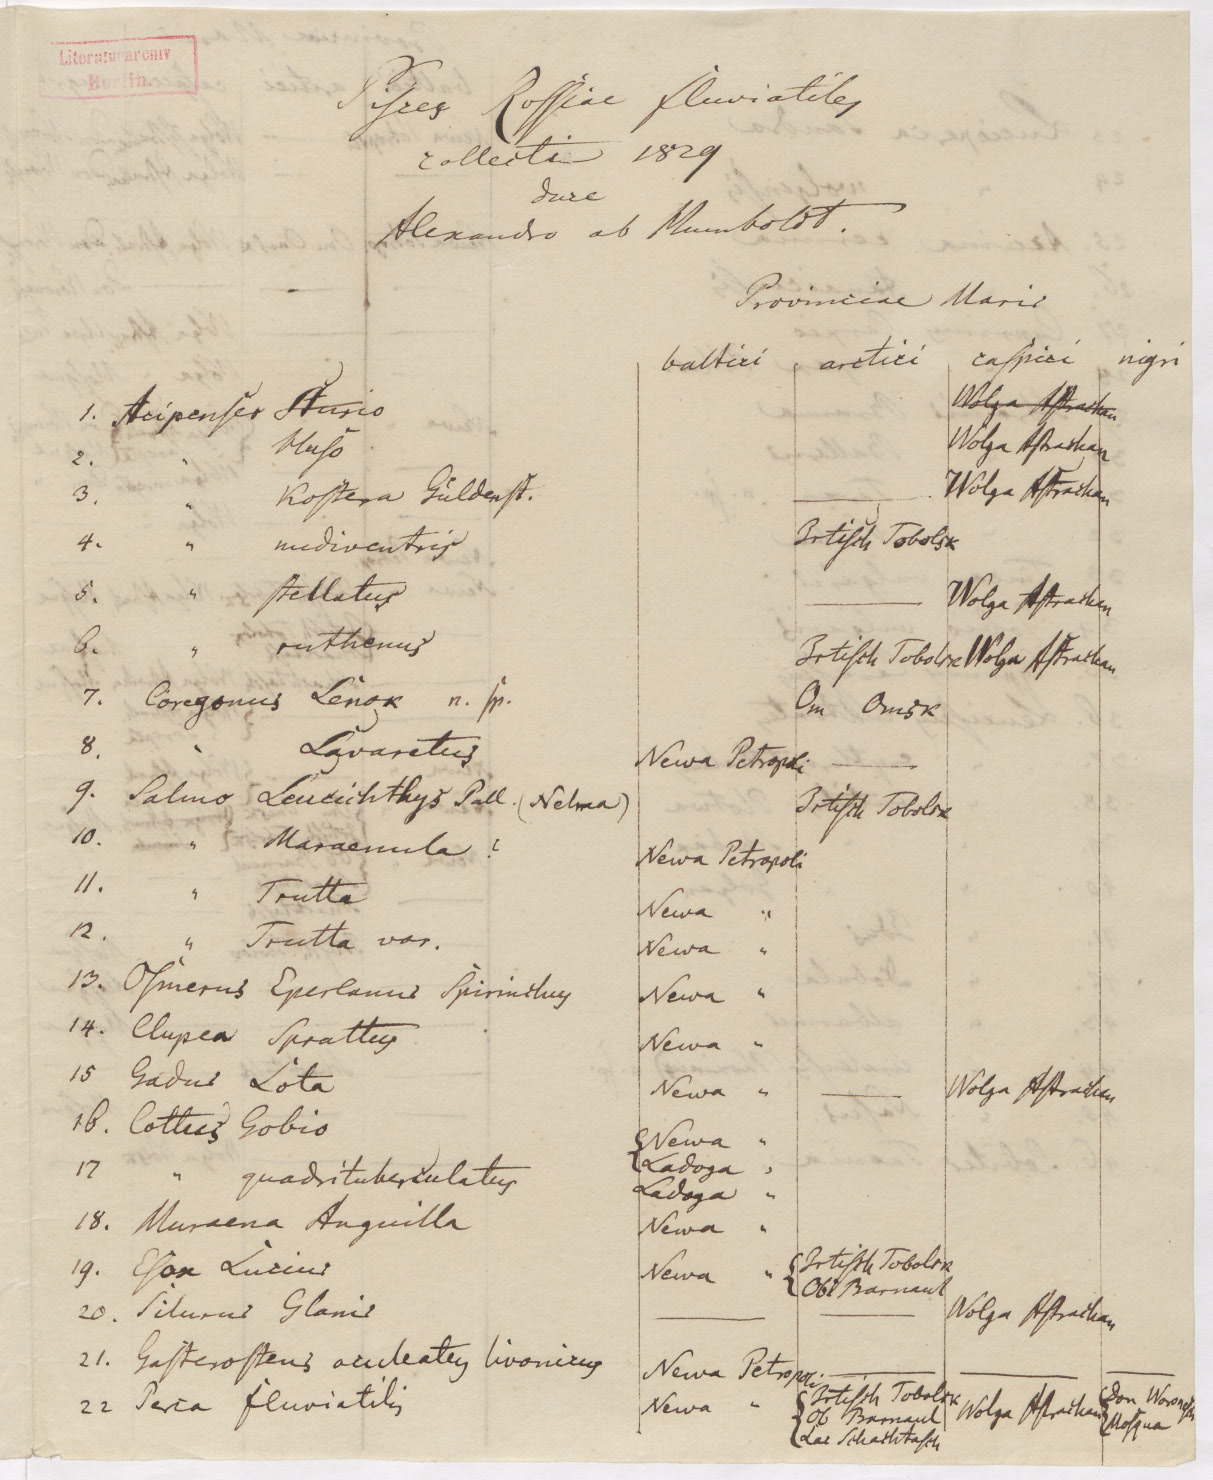 Literaturarchiv
Berlin.
Pisces Rossiae fluviatiles
collecti 1829
duce
Alexandro ab Humboldt.
Provinciae Maris
baltici arctici caspici nigri
1. Acipenser Sturio Wolga Astrachan
2. " Huso Wolga Astrachan
3. " Kostera Güldenst. — Wolga Astrachan
4. " nudiventris Irtisch Tobolsk
5. " stellatus — Wolga Astrachan
6. " ruthenus Irtisch Tobolsk Wolga Astrachan
7. Coregonus Lenok n. sp. Om Omsk
8. " Lavaretus Newa Petropoli —
9. Salmo Leucichthys Pall. (Nelma) Irtisch Tobolsk
10. " Maraenula ? Newa Petropoli
11. " Trutta Newa "
12. " Trutta var. Newa "
13. Osmerus Eperlanus Spirinchus Newa "
14. Clupea Sprattus Newa "
15 Gadus Lota Newa " — Wolga Astrachan
16. Cottus Gobio Newa "
Ladoga "
17 " quadrituberculatus Ladoga "
18. Muraena Anguilla Newa "
19. Esox Lucius Newa " Irtisch Tobolsk
Obi Barnaul
20. Silurus Glanis — — Wolga Astrachan
21. Gasterosteus aculeatus livonicus Newa Petropoli — — —
22 Perca fluviatilis Newa " Irtisch Tobolsk Wolga Astrachan Don Woronesch
Ob Barnaul Mosqua
Lac Schachtasch